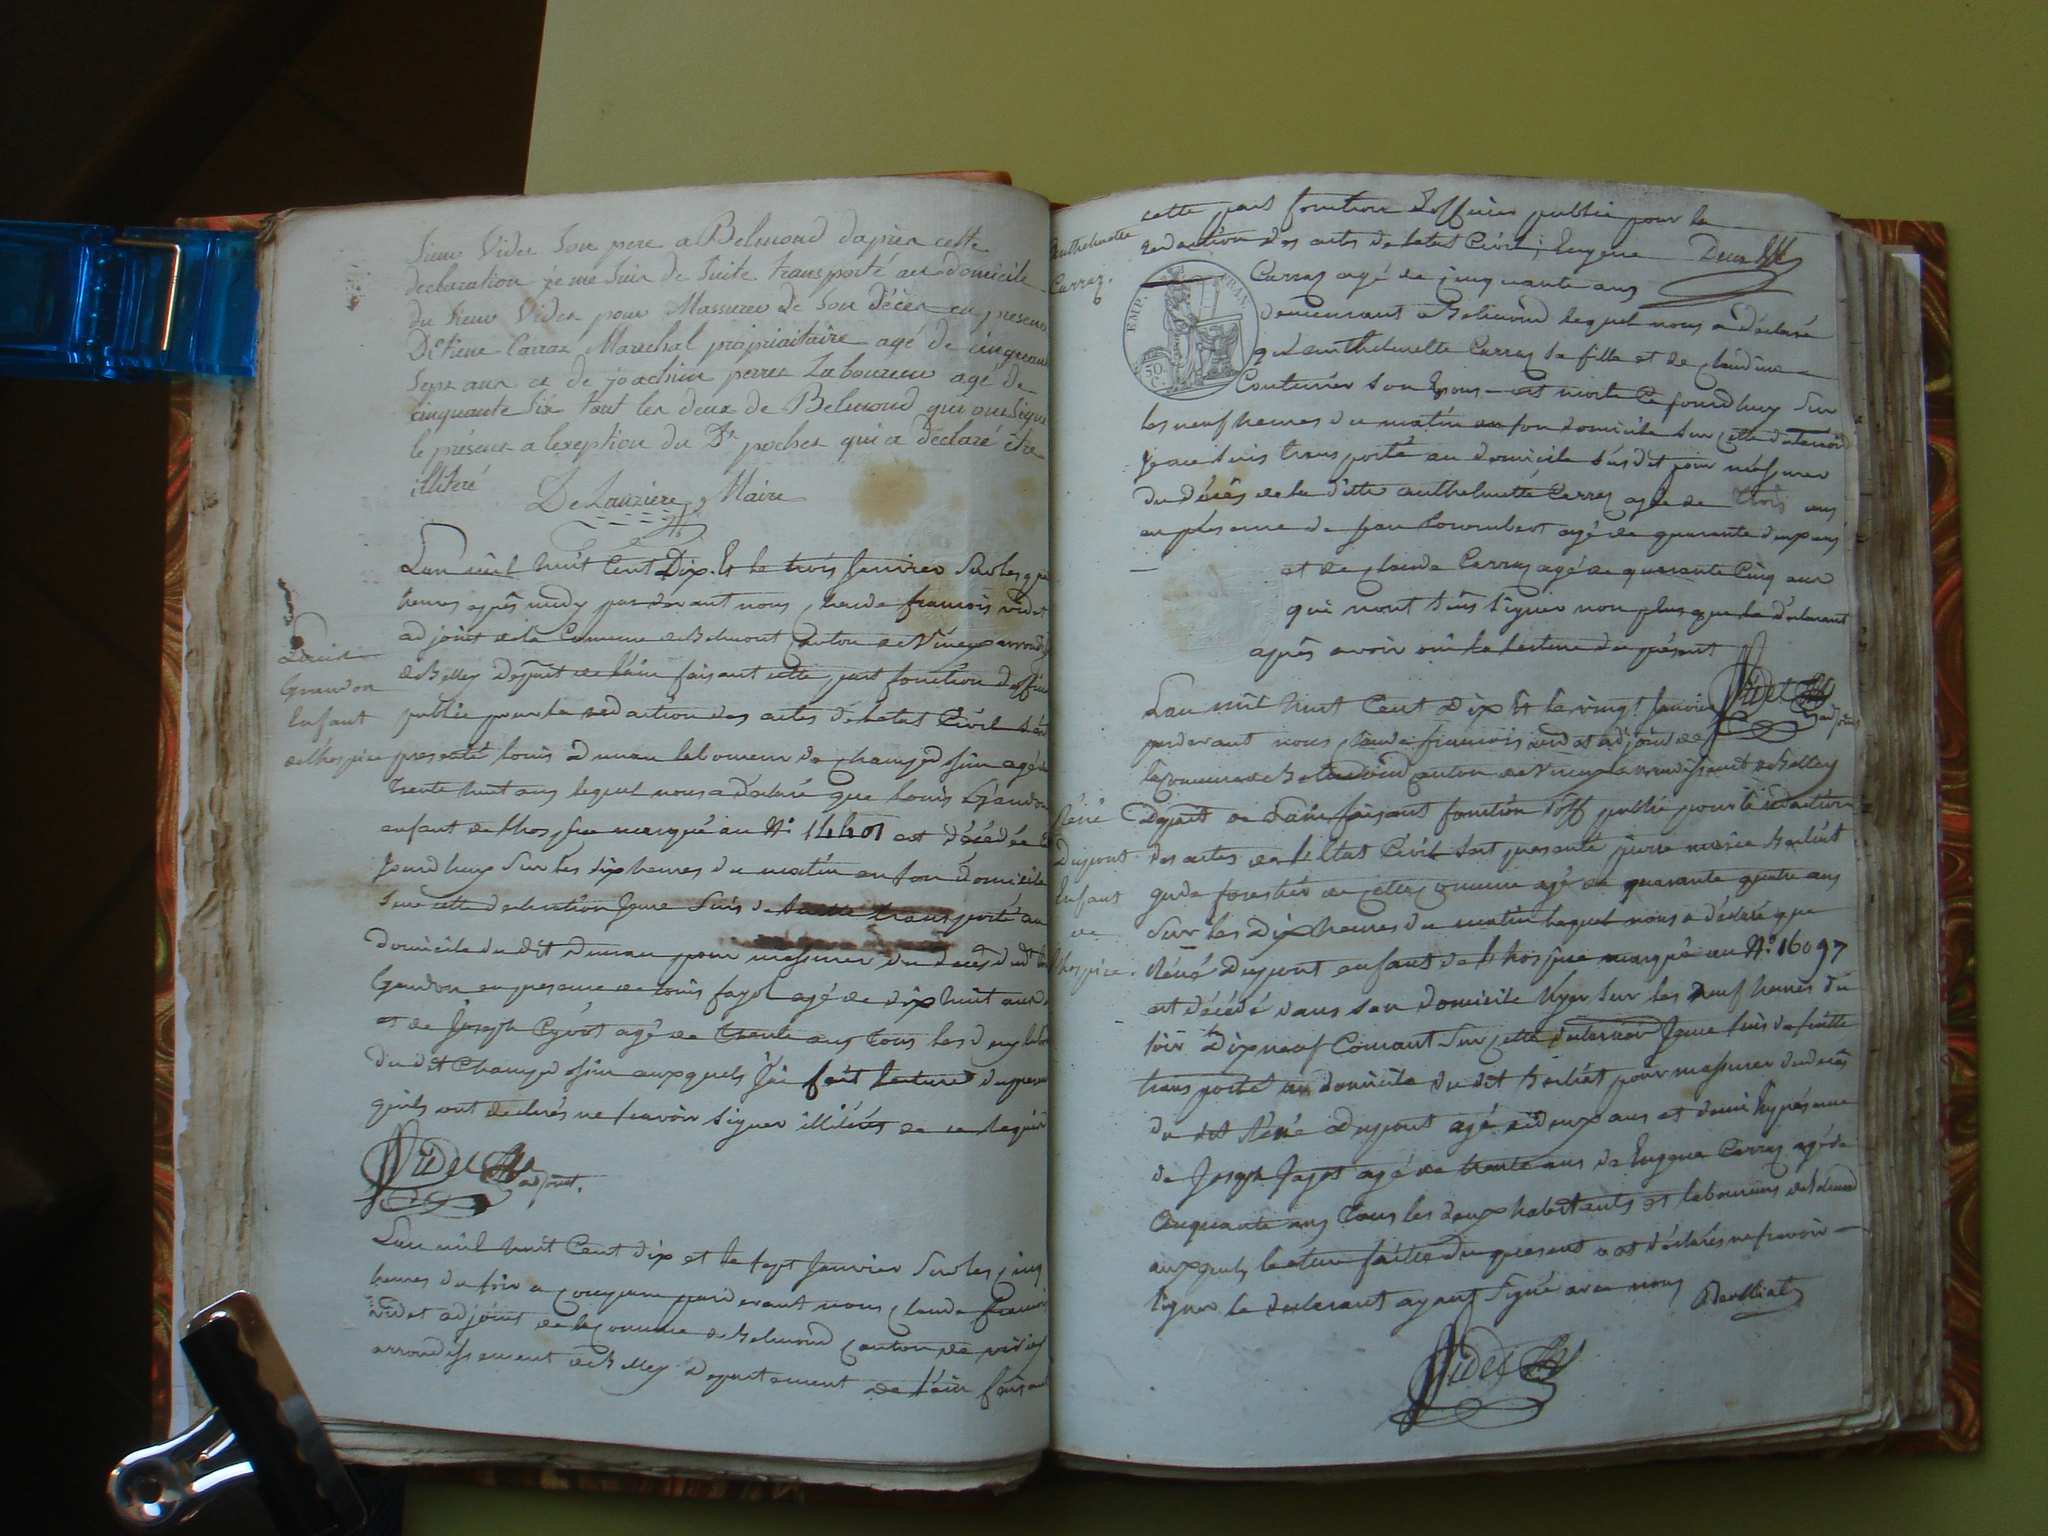 Sieur Videt Son pere a Belmond daprier cette
declaration je me suis de suite transporté au domicile
du Sieur Videt pour Massurer de Son décer en presence
Detiene Carraz Marechal propriaitaire agé de cinquante
Sept ans et de joachim perret Laboureur agé de
cinquante Six tout les deux de Belmond qui ont Signé
le présent a lexeption du Sr pochet qui a déclaré être
illiteré
DeLauziere Maire
Lan mil huit Cent Dix Et le trois Janvier Sur les
heures après midy pardevant nous Claude francois videt
adjoint de la Commune de Belmont Canton de Virieux arrond
de Belley Depart de Lain faisant cette part fonction doffici
publie pour la redaction des actes de letat Civil Sest
presenté louis Dunan laboureur de Champdossin agé de
Trente huit ans lequel nous a déclaré que louis Grandon
enfant de lhospice marqué au N° 14401 est décédé ce
Jourdhuy Sur les dix heures du matin en son domicile
Sur cette declaration Jeme Suis de Suitte transporté au
domicile du dit Dunan pour massurer du décès dudt
Gandon en presence de louis fayol agé de dix huit ans
et de Joseph agé de trente ans tous les deux
du dit Champdossin auxquels Jai fait lecture du present
quils ont declarés ne scavoir signer illiterés de ce requis
Videt
adjoint.
Louis
Grandon
Enfant
de lhospice
Lan mil huit Cent dix et le sept Janvier Sur les cinq
heures du soir a pardevant nous Claude francois
videt adjoint de la Comune de Belmond Canton de virieu
arrondissement de Belley Departement de lain faisant
cette part fonction dofficier public pour la
redaction des actes de letat Civil, Eugene
Carraz agé de cinquante ans
demeurant a Belmond lequel nous a déclaré
quanthelmette Carraz sa fille et de Claudine
Couturier son Epous est morte ce jourdhuy Sur
les neuf heures du matin en son domicile Sur cette declaration
Je me suis transporté au domicile susdit pour massurer
du décès de la ditte anthelmette Carraz agée de trois ans
en présence de agé de quarante deux ans
et de Claude Carraz agé de quarante Cinq ans
qui nont sus signer non plus que le déclarant
après avoir oui la lecture du présent
Videt
adjoint
Anthelmette
Carraz.
EMP. FRAN
50 C.
Lan mil huit Cent Dix Et le vingt Janvier
pardevant nous Claude francois videt adjoint de
la Comune de Belmond canton de Virieux arrondissement de Belley
Depart de Lain faisant fonction doff publie pour la redaction
des actes de lEtat Civil Sest presenté pierre marie Berliat
garde forestier de cette Comune agé de quarante quatre ans
Sur les Dix heures du matin lequel nous a déclaré que
Réné Dupont enfant de lhospice marqué au N° 16097
est décédé dans son domicile hyer Sur les neuf heures du
soir Dixneuf Courant Sur cette declaration Jeme suis de suitte
transporté au domicile du dit Berliat pour massurer du décès
du dit Réné Dupont agé de deux ans et demi En présence
de Joseph Jagot agé de trente ans de Eugene Carraz agé de
Cinquante ans tous les deux habitants et laboureurs de Belmond
auxquels lecture faitte du present ont déclarés ne scavoir
signer le declarant ayant Signé avec nous
Berlliat
Videt
Réné
Dupont
Enfant
de
lhospice.